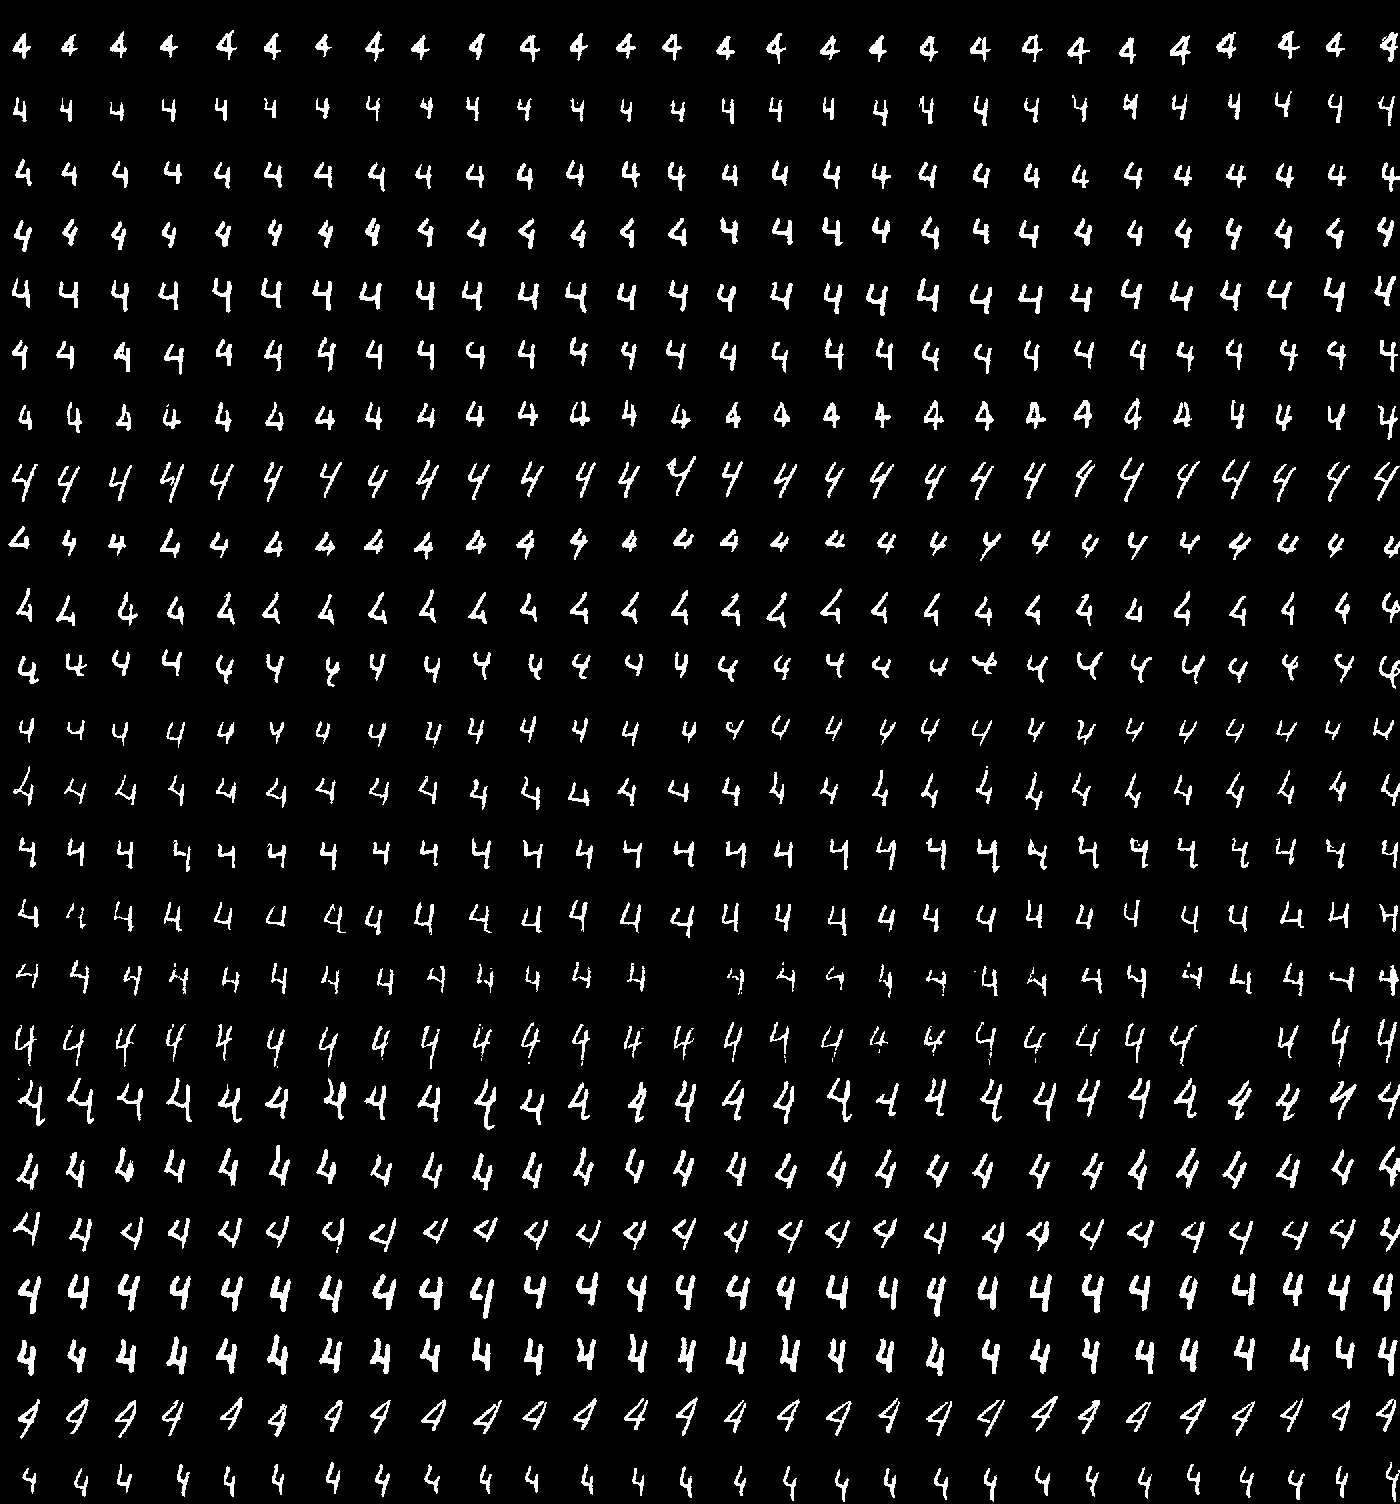 4 4 4 4 4 4 4 4 4 4 4 4 4 4 4 4 4 4 4 4 4 4 4 4 4 4 4 4
4 4 4 4 4 4 4 4 4 4 4 4 4 4 4 4 4 4 4 4 4 4 4 4 4 4 4 4
4 4 4 4 4 4 4 4 4 4 4 4 4 4 4 4 4 4 4 4 4 4 4 4 4 4 4 4
4 4 4 4 4 4 4 4 4 4 4 4 4 4 4 4 4 4 4 4 4 4 4 4 4 4 4 4
4 4 4 4 4 4 4 4 4 4 4 4 4 4 4 4 4 4 4 4 4 4 4 4 4 4 4 4
4 4 4 4 4 4 4 4 4 4 4 4 4 4 4 4 4 4 4 4 4 4 4 4 4 4 4 4
4 4 4 4 4 4 4 4 4 4 4 4 4 4 4 4 4 4 4 4 4 4 4 4 4 4 4 4
4 4 4 4 4 4 4 4 4 4 4 4 4 4 4 4 4 4 4 4 4 4 4 4 4 4 4 4
4 4 4 4 4 4 4 4 4 4 4 4 4 4 4 4 4 4 4 4 4 4 4 4 4 4 4 4
4 4 4 4 4 4 4 4 4 4 4 4 4 4 4 4 4 4 4 4 4 4 4 4 4 4 4 4
4 4 4 4 4 4 4 4 4 4 4 4 4 4 4 4 4 4 4 4 4 4 4 4 4 4 4 4
4 4 4 4 4 4 4 4 4 4 4 4 4 4 4 4 4 4 4 4 4 4 4 4 4 4 4 4
4 4 4 4 4 4 4 4 4 4 4 4 4 4 4 4 4 4 4 4 4 4 4 4 4 4 4 4
4 4 4 4 4 4 4 4 4 4 4 4 4 4 4 4 4 4 4 4 4 4 4 4 4 4 4 4
4 4 4 4 4 4 4 4 4 4 4 4 4 4 4 4 4 4 4 4 4 4 4 4 4 4 4 4
4 4 4 4 4 4 4 4 4 4 4 4 4 4 4 4 4 4 4 4 4 4 4 4 4 4 4
4 4 4 4 4 4 4 4 4 4 4 4 4 4 4 4 4 4 4 4 4 4 4 4 4 4 4
4 4 4 4 4 4 4 4 4 4 4 4 4 4 4 4 4 4 4 4 4 4 4 4 4 4 4 4
4 4 4 4 4 4 4 4 4 4 4 4 4 4 4 4 4 4 4 4 4 4 4 4 4 4 4 4
4 4 4 4 4 4 4 4 4 4 4 4 4 4 4 4 4 4 4 4 4 4 4 4 4 4 4 4
4 4 4 4 4 4 4 4 4 4 4 4 4 4 4 4 4 4 4 4 4 4 4 4 4 4 4 4
4 4 4 4 4 4 4 4 4 4 4 4 4 4 4 4 4 4 4 4 4 4 4 4 4 4 4 4
4 4 4 4 4 4 4 4 4 4 4 4 4 4 4 4 4 4 4 4 4 4 4 4 4 4 4 4
4 4 4 4 4 4 4 4 4 4 4 4 4 4 4 4 4 4 4 4 4 4 4 4 4 4 4 4